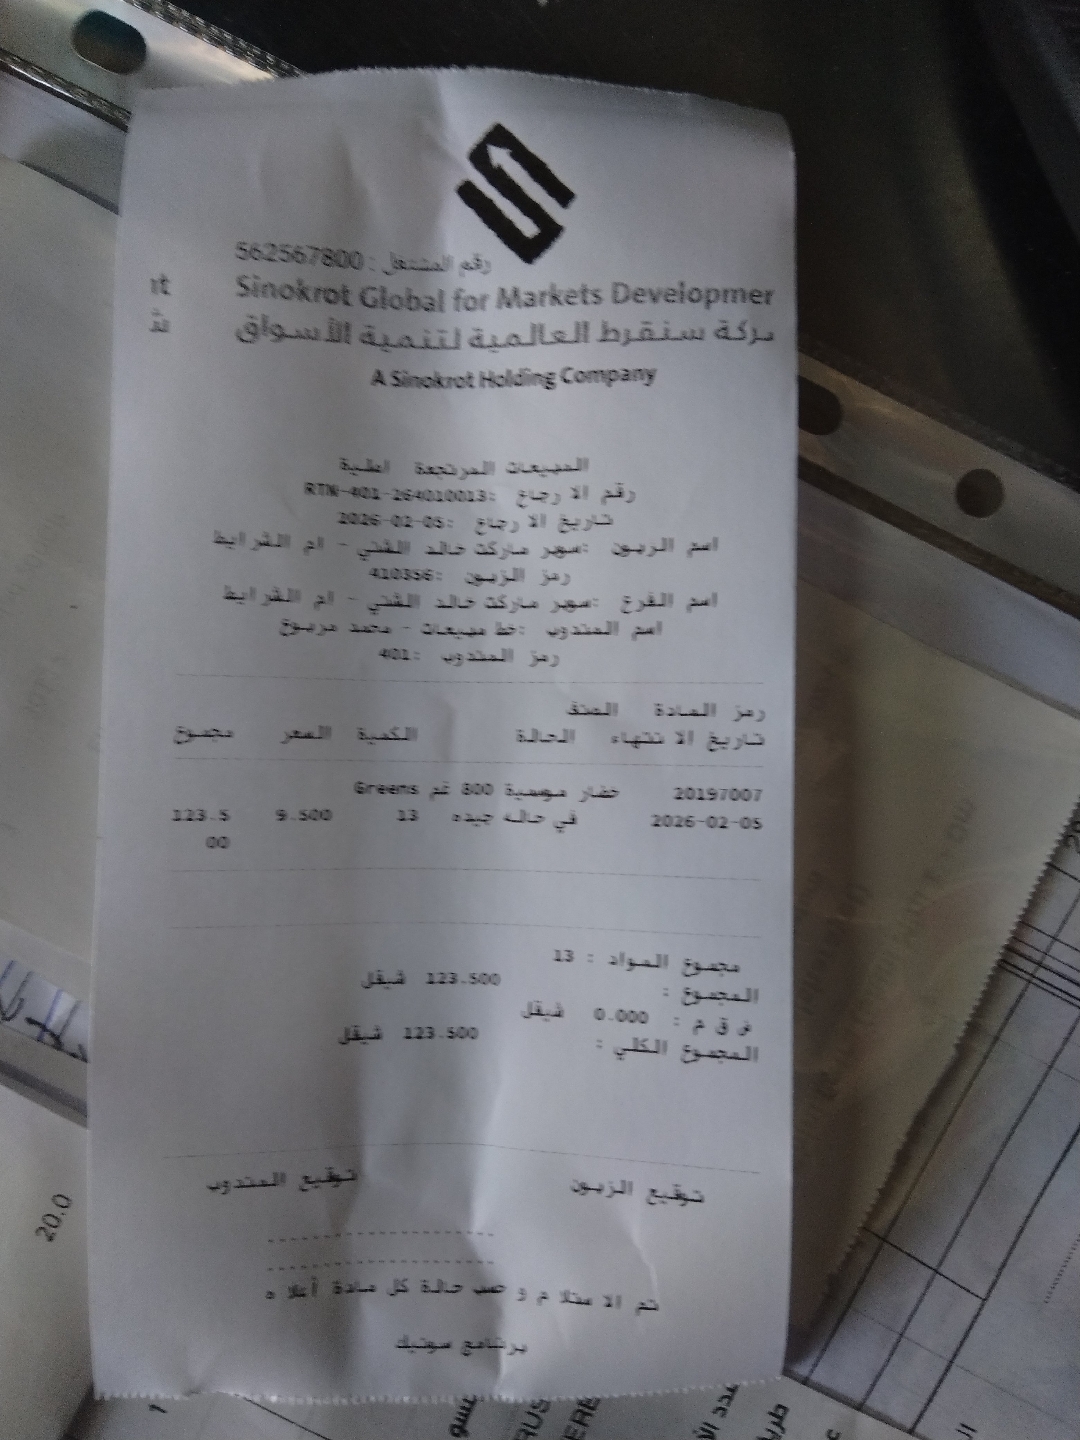 رقم المشتغل : 562567800
Sinokrot Global for Markets Developmer
rt
ركة سنقرط العالمية لتنمية الأسواق
ش
A Sinokrot Holding Company
المبيعات المرتجعة اصلية
رقم الارجاع :RTN-401-264010013
تاريخ الارجاع :2026-02-05
اسم الزبون :سوبر ماركت خالد الشني - ام الشرايط
رمز الزبون :410356
اسم الفرع :سوبر ماركت خالد الشني - ام الشرايط
اسم المندوب :خط مبيعات - محمد مربوع
رمز المندوب :401
رمز المادة الصنف
تاريخ الانتهاء الحالة الكمية السعر مجموع
20197007 خضار موسمية 800 غم Greens
2026-02-05 في حاله جيده 13 9.500 123.5
00
مجموع المواد : 13
المجموع : 123.500 شيقل
ض ق م : 0.000 شيقل
المجموع الكلي : 123.500 شيقل
توقيع الزبون توقيع المندوب
تم الاستلام و حسب حالة كل مادة أعلاه
برنامج سونيك
20.0
1